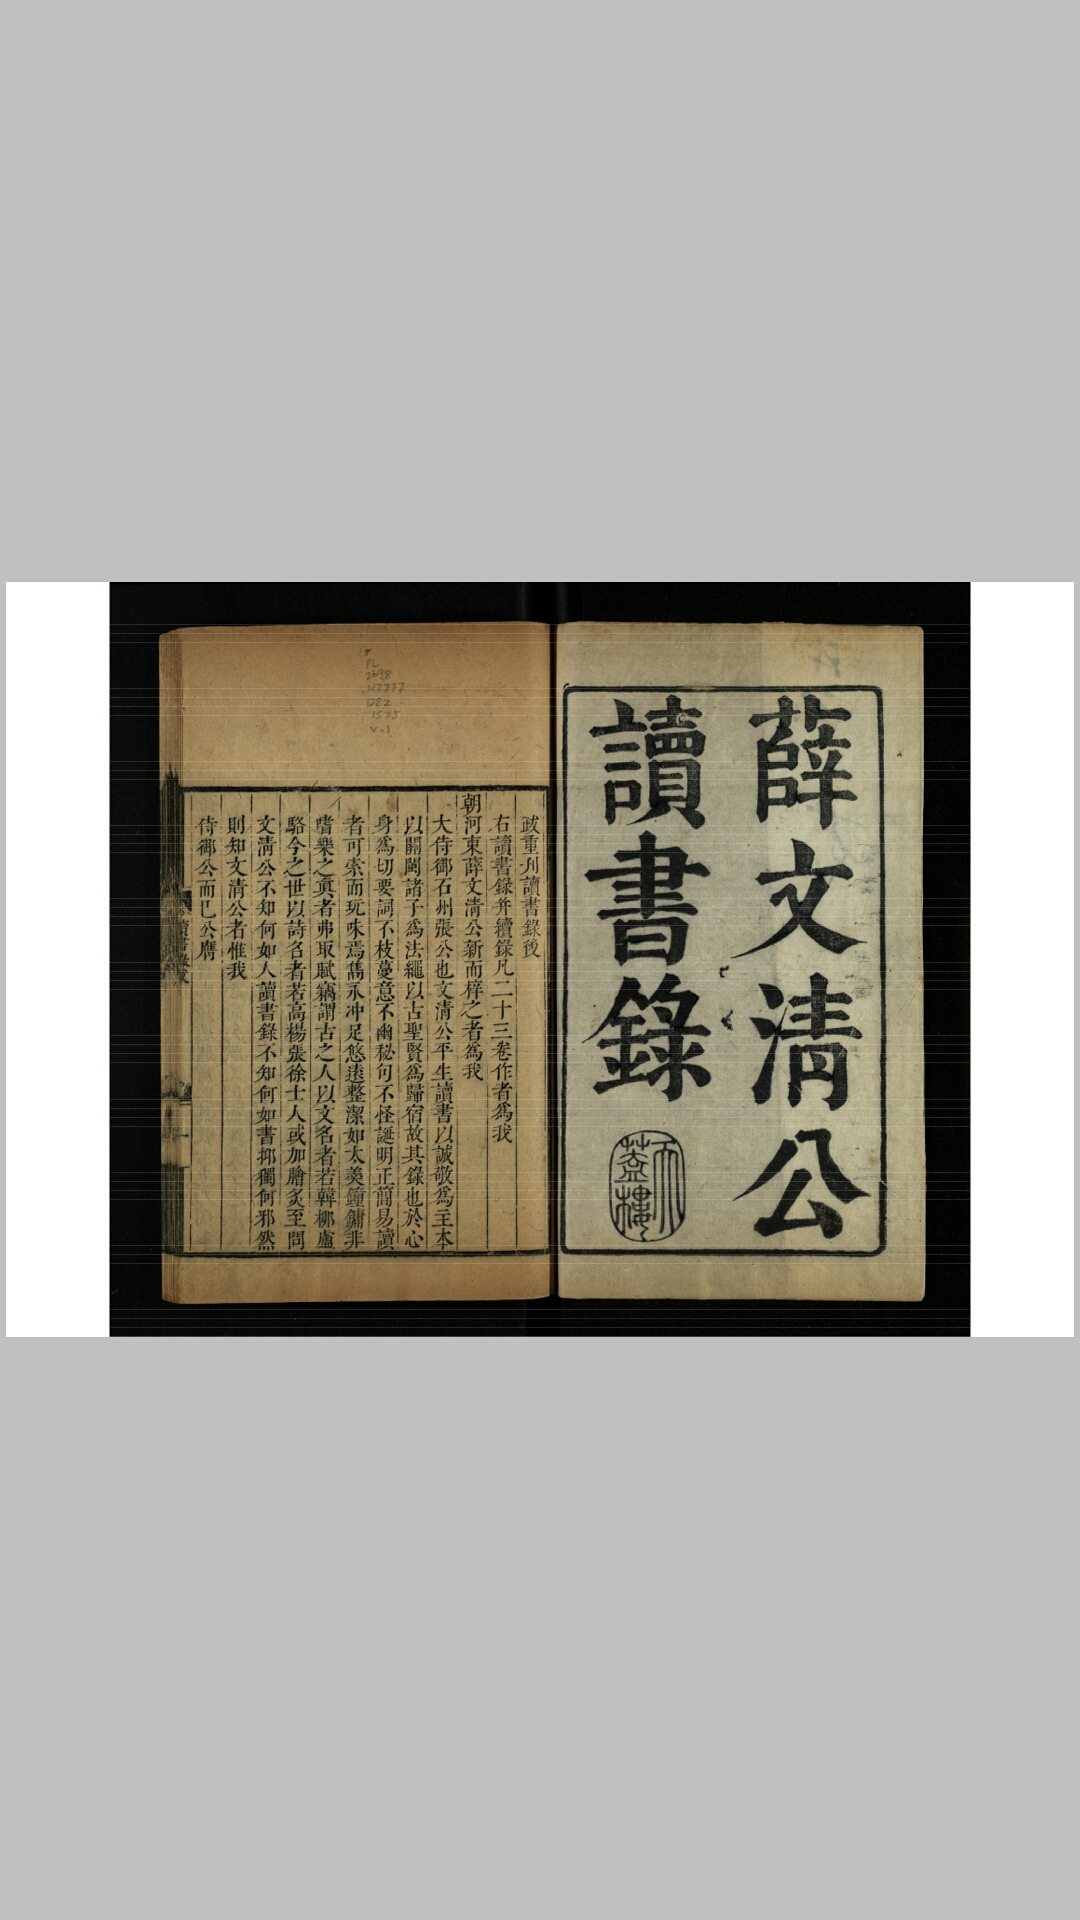 薛文清公
讀書錄
天
蓋樓
跋重刋讀書錄後
右讀書錄并續錄凡二十三卷作者爲我
朝河東薛文清公新而梓之者爲我
大侍御石州張公也文清公平生讀書以誠敬爲主本
以關閩諸子爲法繩以占聖賢爲歸宿故其錄也於心
身爲切要詞不枝蔓意不幽秘句不怪誕明正簡易讀
者可索而玩味焉雋永冲足悠遠整潔如太羹鐘鏞非
嗜樂之眞者弗取賦竊謂古之人以文名者若韓柳盧
駱今之世以詩名者若高楊張徐士人或加膾炙至問
文清公不知何如人讀書錄不知何如書抑獨何邪然
則知文清公者惟我
侍御公而已公膺
讀書錄跋
一
PL
2698
.H7777
D82
1525
v.1